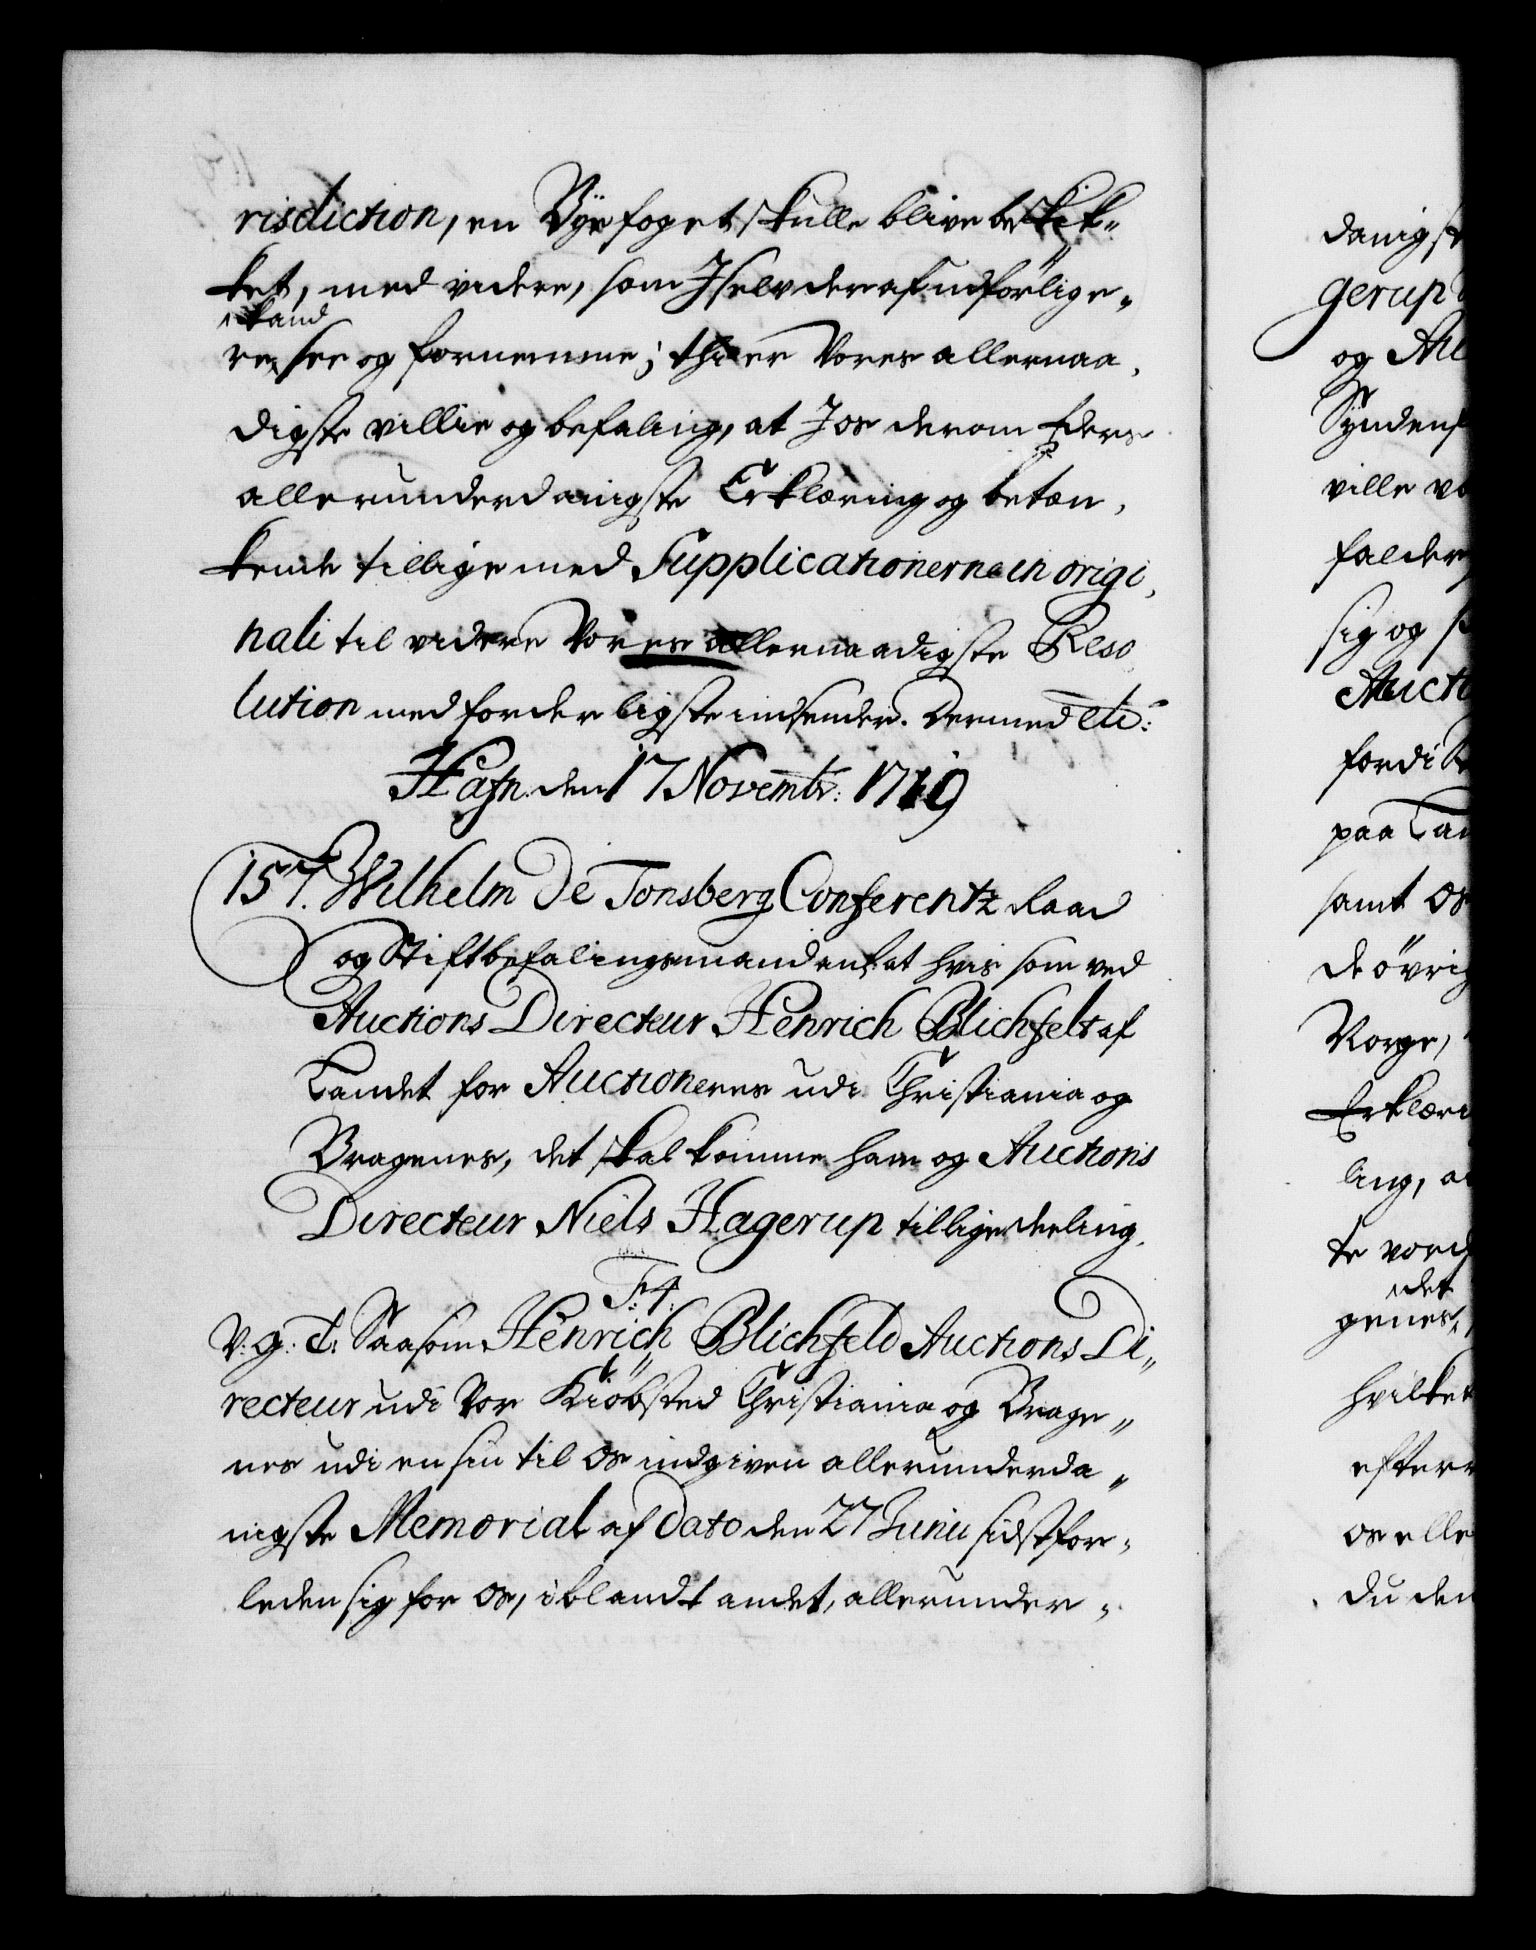 risdiction, en Byefoget skulle blive beskik„
ket, med videre, som J selv deraf udförlige„
kand
re see og fornemme; thi er Vores allernaa,
digste villie og befaling, at J os derom Eders
allerunderdanigste Erklæring og betæn,
kende tillige med Supplicationerne in origi,
nali til videre Vores allernaadigste Reso
lution med forderligste indsender. Dermed etc:
Hafn. den 17 Novembr: 1719
157. Wilhelm de Tonsberg Conferentz Raad
og Stiftbefalingsmand ank: at hvis som ved
Auctions Directeur Henrich Blichfelt af
Landet for Auctionernes udi Christiania og
Bragenes, det skal komme ham og Auctions
Directeur Niels Hagerup tillige deeling.
F: 4:
V: g: t: Saasom Henrich Blichfeld Auctions Di„
recteur udi Vor Kiöbsted Christiania og Brage„
nes udi en sin til os indgiven allerunderda„
nigste Memorial af Dato den 27 Junii sidstfor„
leden sig for os, iblandt andet, allerunder„
danigst
gerup
og Auc
Syndenf
ville
falder
sig og
Auct
fordi
paa Lan
samt os
de övrig
Norge,
Erklæri
ling, a
te vord
det
genes
hvilket
efter
os elle
du den